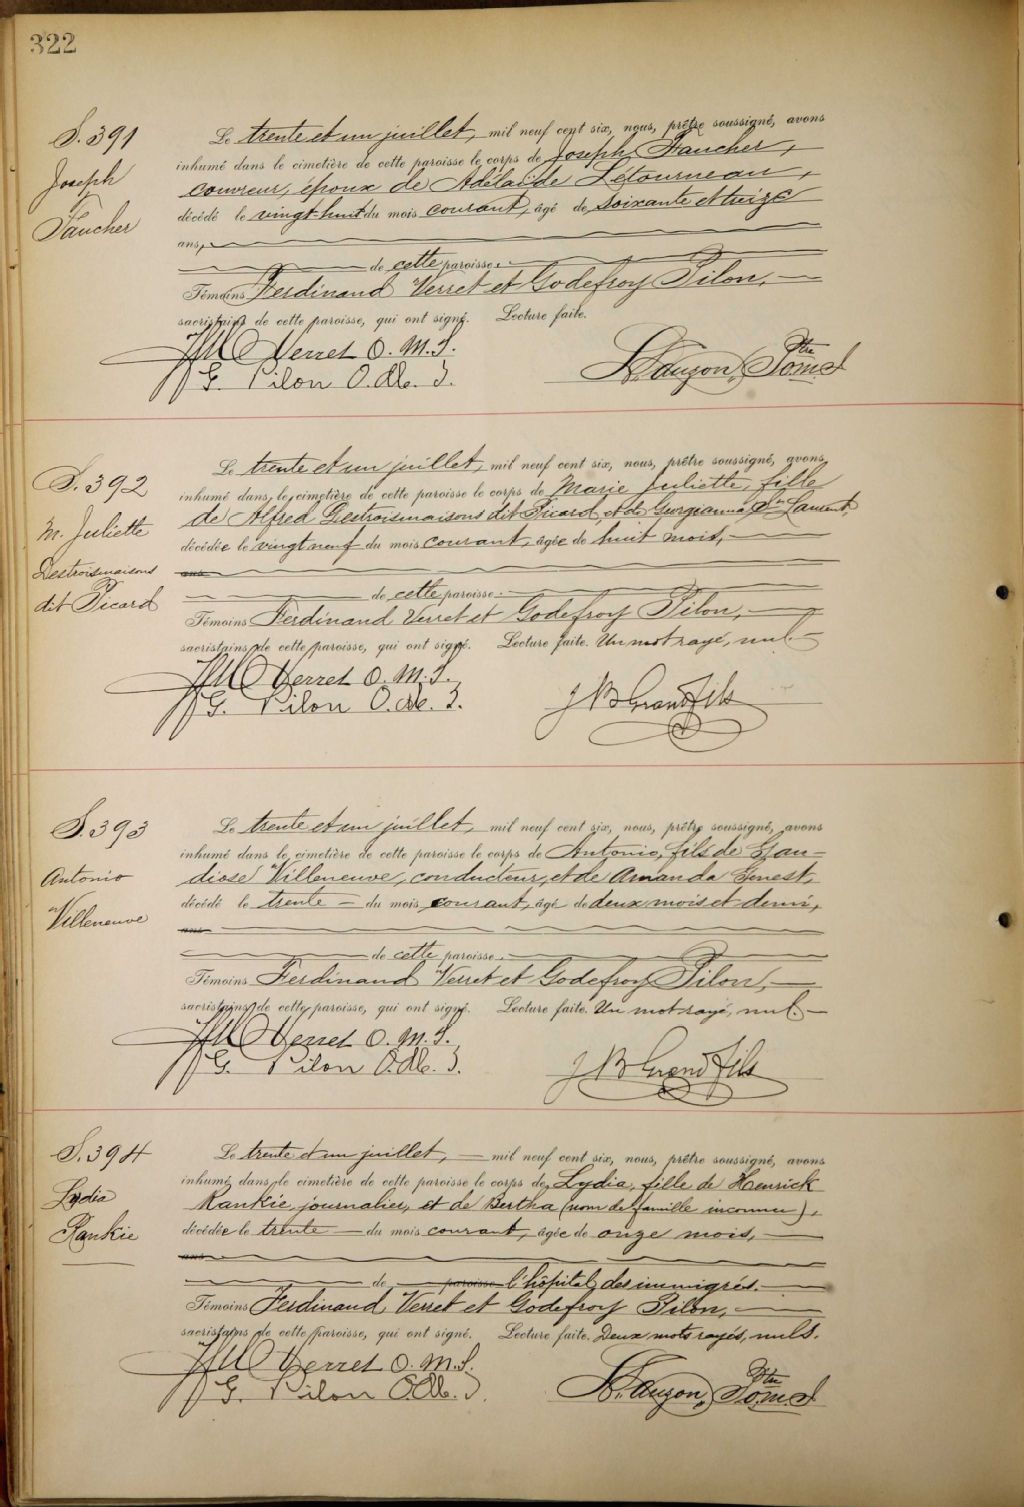 322
S. 391
Joseph
Faucher
Le trente et un juillet, mil neuf cent six, nous, prêtre soussigné, avons
inhumé dans le cimetière de cette paroisse le corps de Joseph Faucher,
couvreur, époux de Adélaïde Létourneau,
décédé le vingt-huit du mois courant, âgé de soixante et treize
ans,
de cette paroisse.
Témoins Ferdinand Verret et Godefroy Pilon,
sacristains de cette paroisse, qui ont signé. Lecture faite.
Verret O. M. I.
G. Pilon O. M. I.
Lauzon, Ptre O.M.I.
S. 392
M. Juliette
Destroismaisons
dit Picard
Le trente et un juillet, mil neuf cent six, nous, prêtre soussigné, avons
inhumé dans le cimetière de cette paroisse le corps de Marie Juliette, fille
de Alfred Destroismaisons dit Picard, et de Georgianna St Laurent,
décédée le vingt neuf du mois courant, âgée de huit mois,
ans
de cette paroisse.
Témoins Ferdinand Verret et Godefroy Pilon,
sacristains de cette paroisse, qui ont signé. Lecture faite. Un mot rayé, nul.
Verret O. M. I.
G. Pilon O. M. I.
J B Grandfils
S. 393
Antonio
Villeneuve
Le trente et un juillet, mil neuf cent six, nous, prêtre soussigné, avons
inhumé dans le cimetière de cette paroisse le corps de Antonio, fils de Gau-
diose Villeneuve, conducteur, et de Amanda Genest,
décédé le trente du mois courant, âgé de deux mois et demi,
ans
de cette paroisse.
Témoins Ferdinand Verret et Godefroy Pilon,
sacristains de cette paroisse, qui ont signé. Lecture faite. Un mot rayé, nul.
Verret O. M. I.
G. Pilon O. M. I.
J B Grandfils
S. 394
Lydia
Rankie
Le trente et un juillet, mil neuf cent six, nous, prêtre soussigné, avons
inhumé dans le cimetière de cette paroisse le corps de Lydia, fille de Henrick
Rankie, journalier, et de Bertha (nom de famille inconnu),
décédée le trente du mois courant, âgée de onze mois,
ans
de paroisse l'hôpital des immigrés.
Témoins Ferdinand Verret et Godefroy Pilon,
sacristains de cette paroisse, qui ont signé. Lecture faite. Deux mots rayés, nuls.
Verret O. M. I.
G. Pilon O. M. I.
Lauzon, Ptre O.M.I.